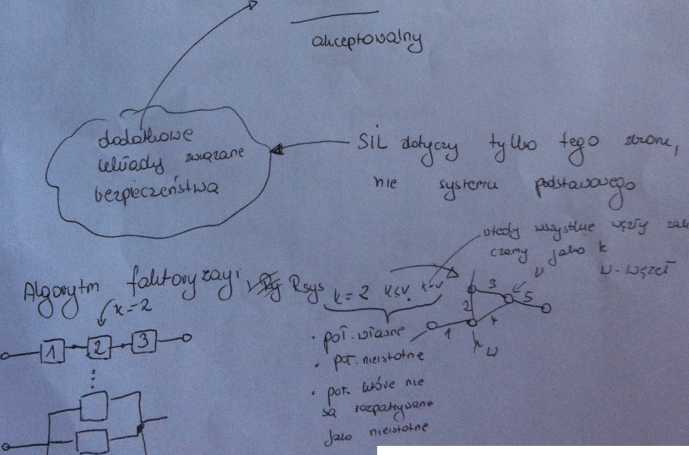 akceptowalny
dodatkowe
układy związane
bezpieczeństwa
SIL dotyczy tylko tego
nie systemu podstawowego
wtedy wszystkie węzły
czamy jako k
w - węzeł
Algorytm faktoryzacji Rsys
k=2
k=2
1 2 3
3
2
5
1
• poł. własne
• poł. nieistotne
• poł. które nie
są rozpatrywane
jako nieistotne